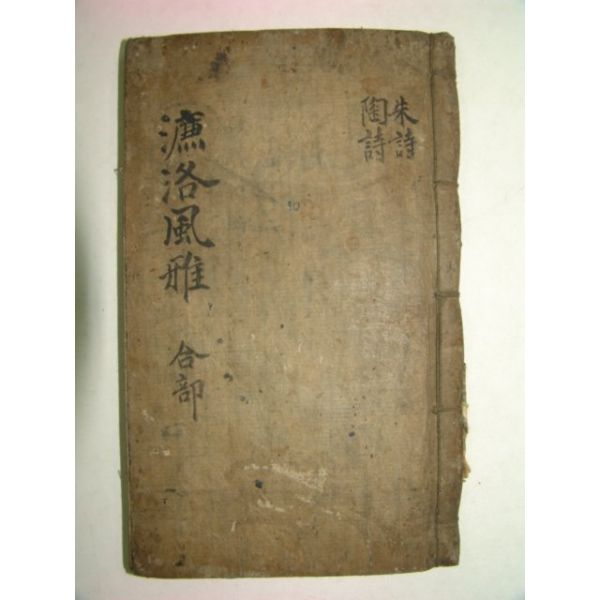 朱詩
陶詩
濂洛風雅 合部